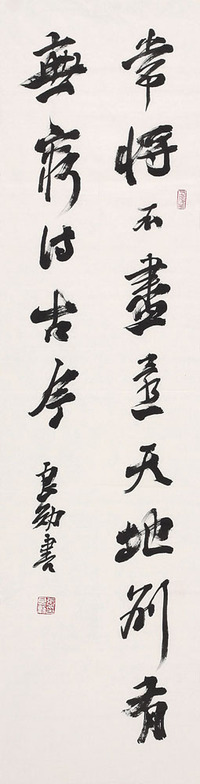 常將不盡還天地別有
無窮付古今
書